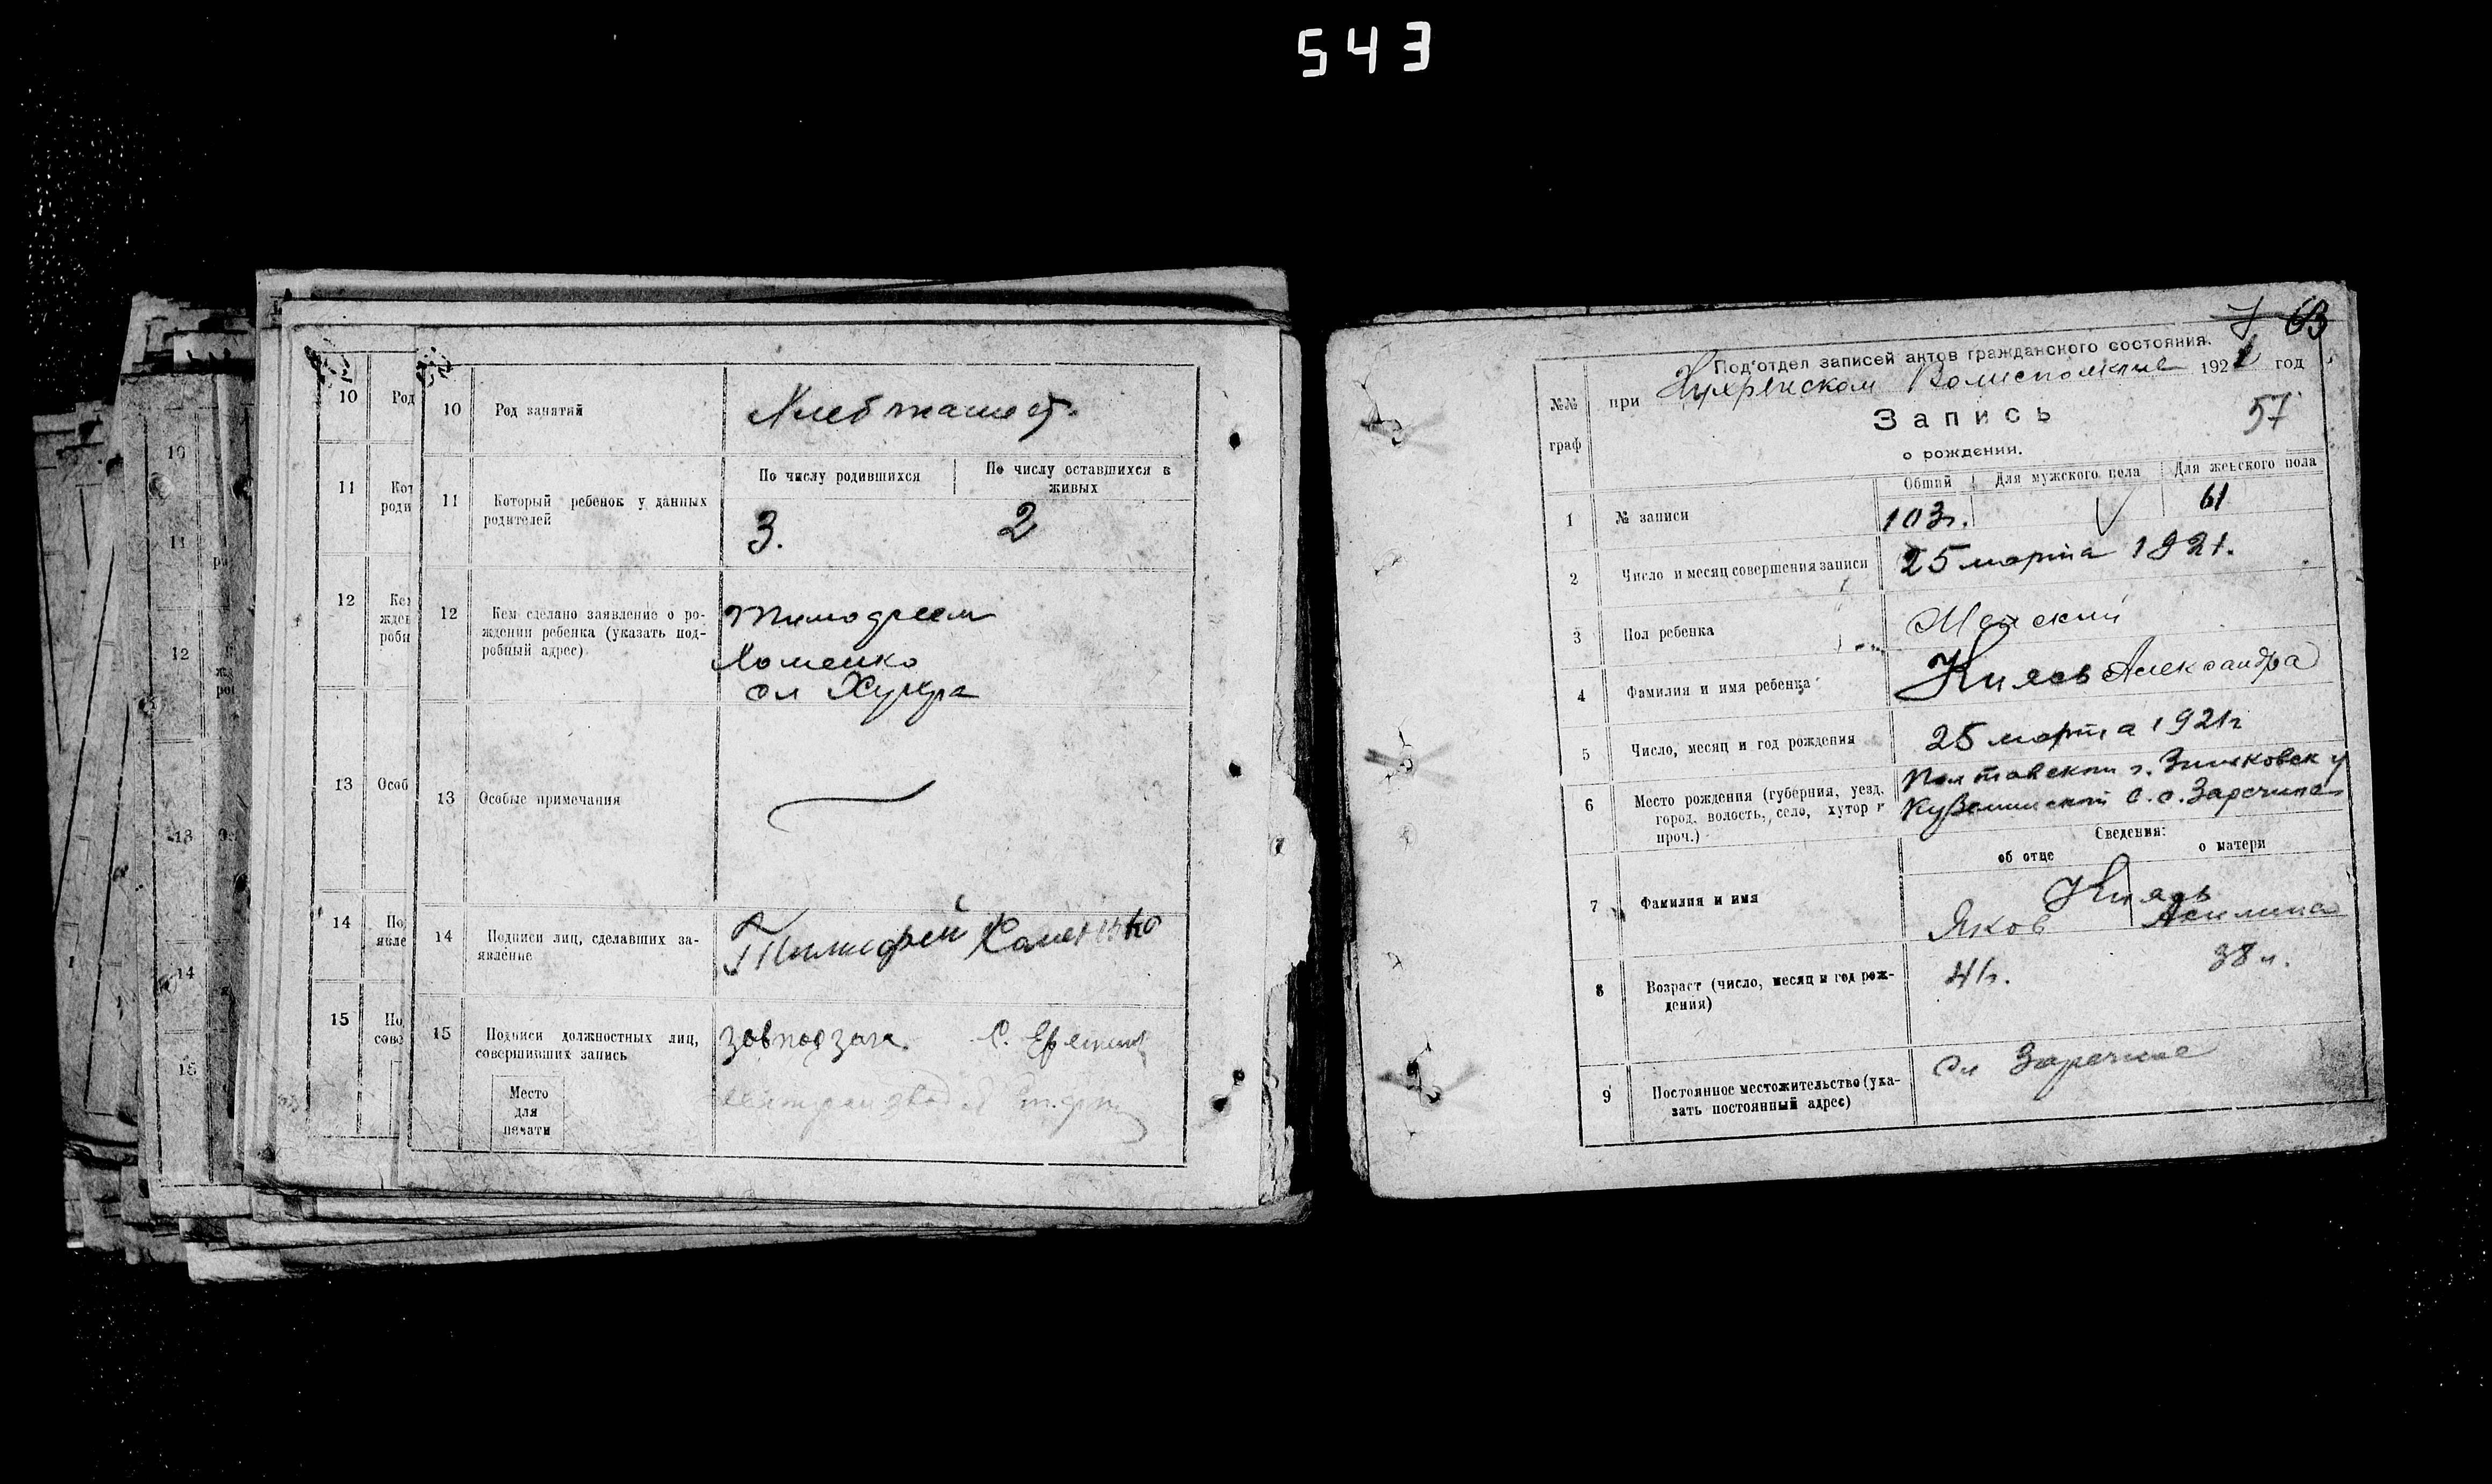 543
10
Род
11
Кот
роди
12
Ке
жден
роби
13
Особ
14
По
явле
15
По
сове
10
11
12
13
14
15
10 Род занятий
11 Который ребенок у данных
родителей
По числу родившихся
По числу оставшихся в
живых
3.
2
12 Кем сделано заявление о ро-
ждении ребенка (указать под-
робный адрес)
Тимофеем
Хоменко
сл
13 Особые примечания
14 Подписи лиц, сделавших за-
явление
Тимофей Хоменко
15 Подписи должностных лиц,
совершивших запись
Завподзага.
Место
для
печати
63
Под'отдел записей актов гражданского состояния.
№№
граф
при Волисполкоме 1921 год
Запись
57
о рождении.
Общий Для мужского пола Для женского пола
1 № записи
103
61
2 Число и месяц совершения записи
25 марта 1921.
3 Пол ребенка
4 Фамилия и имя ребенка
Князь Александра
5 Число, месяц и год рождения
25 марта 1921г
6 Место рождения (губерния, уезд,
город, волость, село, хутор и
проч.)
Полтавской г. Зиньковск у
Куземинской
Сведения:
об отце
о матери
7 Фамилия и имя
Князь
Яков
Акилина
8 Возраст (число, месяц и год рож-
дения)
38 л.
9 Постоянное местожительство (ука-
зать постоянный адрес)
сл Заречное